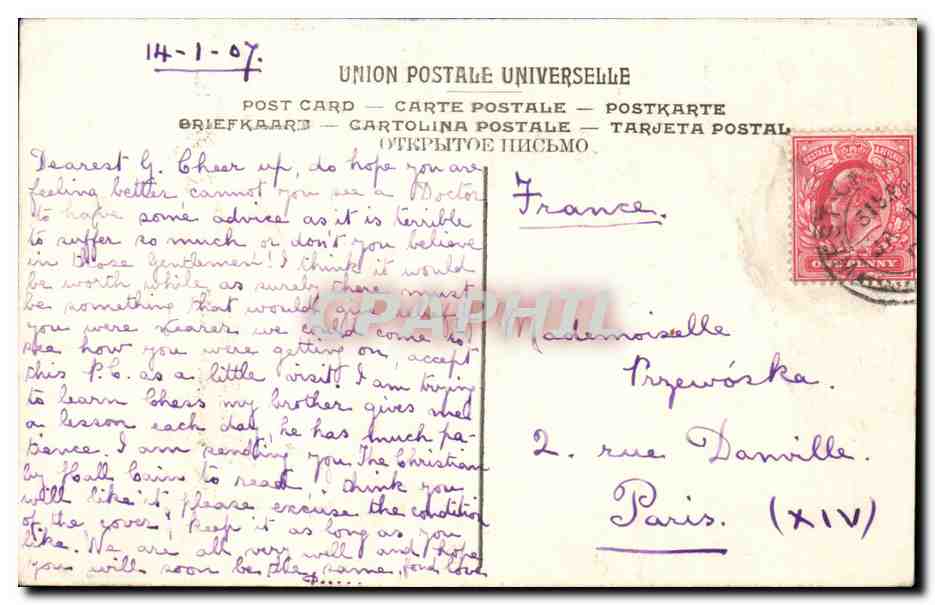 14-1-07.
UNION POSTALE UNIVERSELLE
POST CARD — CARTE POSTALE — POSTKARTE
BRIEFKAART — CARTOLINA POSTALE — TARJETA POSTAL
ОТКРЫТОЕ ПИСЬМО
Dearest G. Cheer up, do hope you are
feeling better, cannot you see a Doctor
to have some advice as it is terrible
to suffer so much or don't you believe
in those Gentlemen! I think it would
be worth while, as surely there must
be something that would If
you were nearer we could come to
see how you were getting on, accept
this P.C. as a little visit! I am trying
to learn Chess my brother gives me
a lesson each day, he has much pa-
tience. I am sending you The Christian
by Hall Cain to read, I think you
will like it, please excuse the condition
of the cover, keep it as long as you
like. We are all very well and hope
you will soon be the same, fond love
France.
Mademoiselle
Przewóska.
2. rue Danville.
Paris. (XIV)
POSTAGE REVENUE
ONE PENNY
CPAPHIL